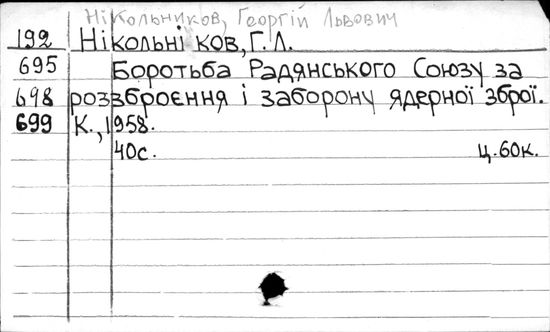 Нікольников, Георгій Львович
192 Нікольні ков, Г. Л.
695 Боротьба Радянського Союзу за
698 роззброєння і заборону ядерної зброї.
699 К., 1958.
40с. Ц. 60к.